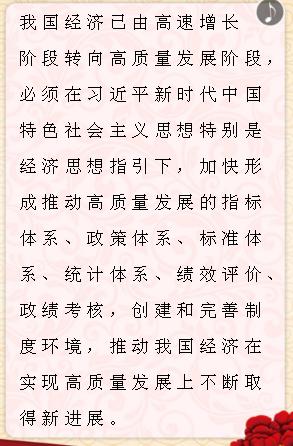 我国经济已由高速增长
阶段转向高质量发展阶段，
必须在习近平新时代中国
特色社会主义思想特别是
经济思想指引下，加快形
成推动高质量发展的指标
体系、政策体系、标准体
系、统计体系、绩效评价、
政绩考核，创建和完善制
度环境，推动我国经济在
实现高质量发展上不断取
得新进展。